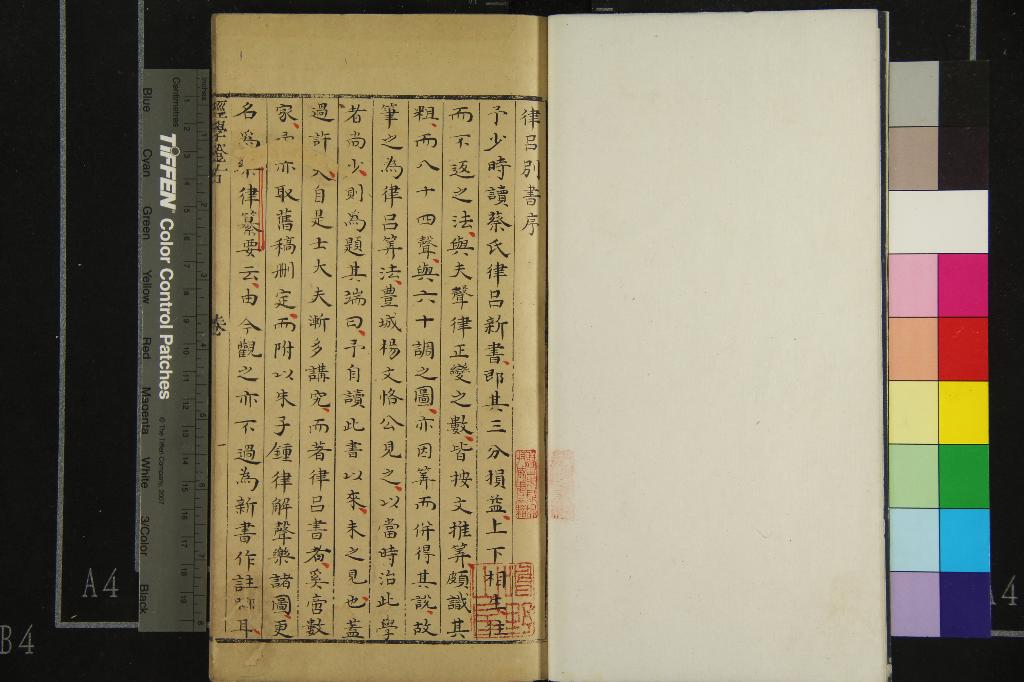 律呂別書序
予少時讀蔡氏律呂新書即其三分損益上下相生往
而不返之法與夫聲律正變之數皆按文推筭頗識其
粗而八十四聲與六十調之圖亦因筭而併得其說故
筆之為律呂筭法豊城楊文恪公見之以當時治此學
者尚少則為題其端曰予自讀此書以來未之見也蓋
過許 自是士大夫漸多講究而著律呂書者奚啻數
家 亦取舊稿刪定而附以朱子鍾律解聲樂諸圖更
名為 律纂要云由今觀之亦不過為新書作註 耳
卷一
TIFFEN Color Control Patches
© The Tiffen Company, 2007
Centimetres
Inches
Blue
Cyan
Green
Yellow
Red
Magenta
White
3/Color
Black
A4
B4
A4